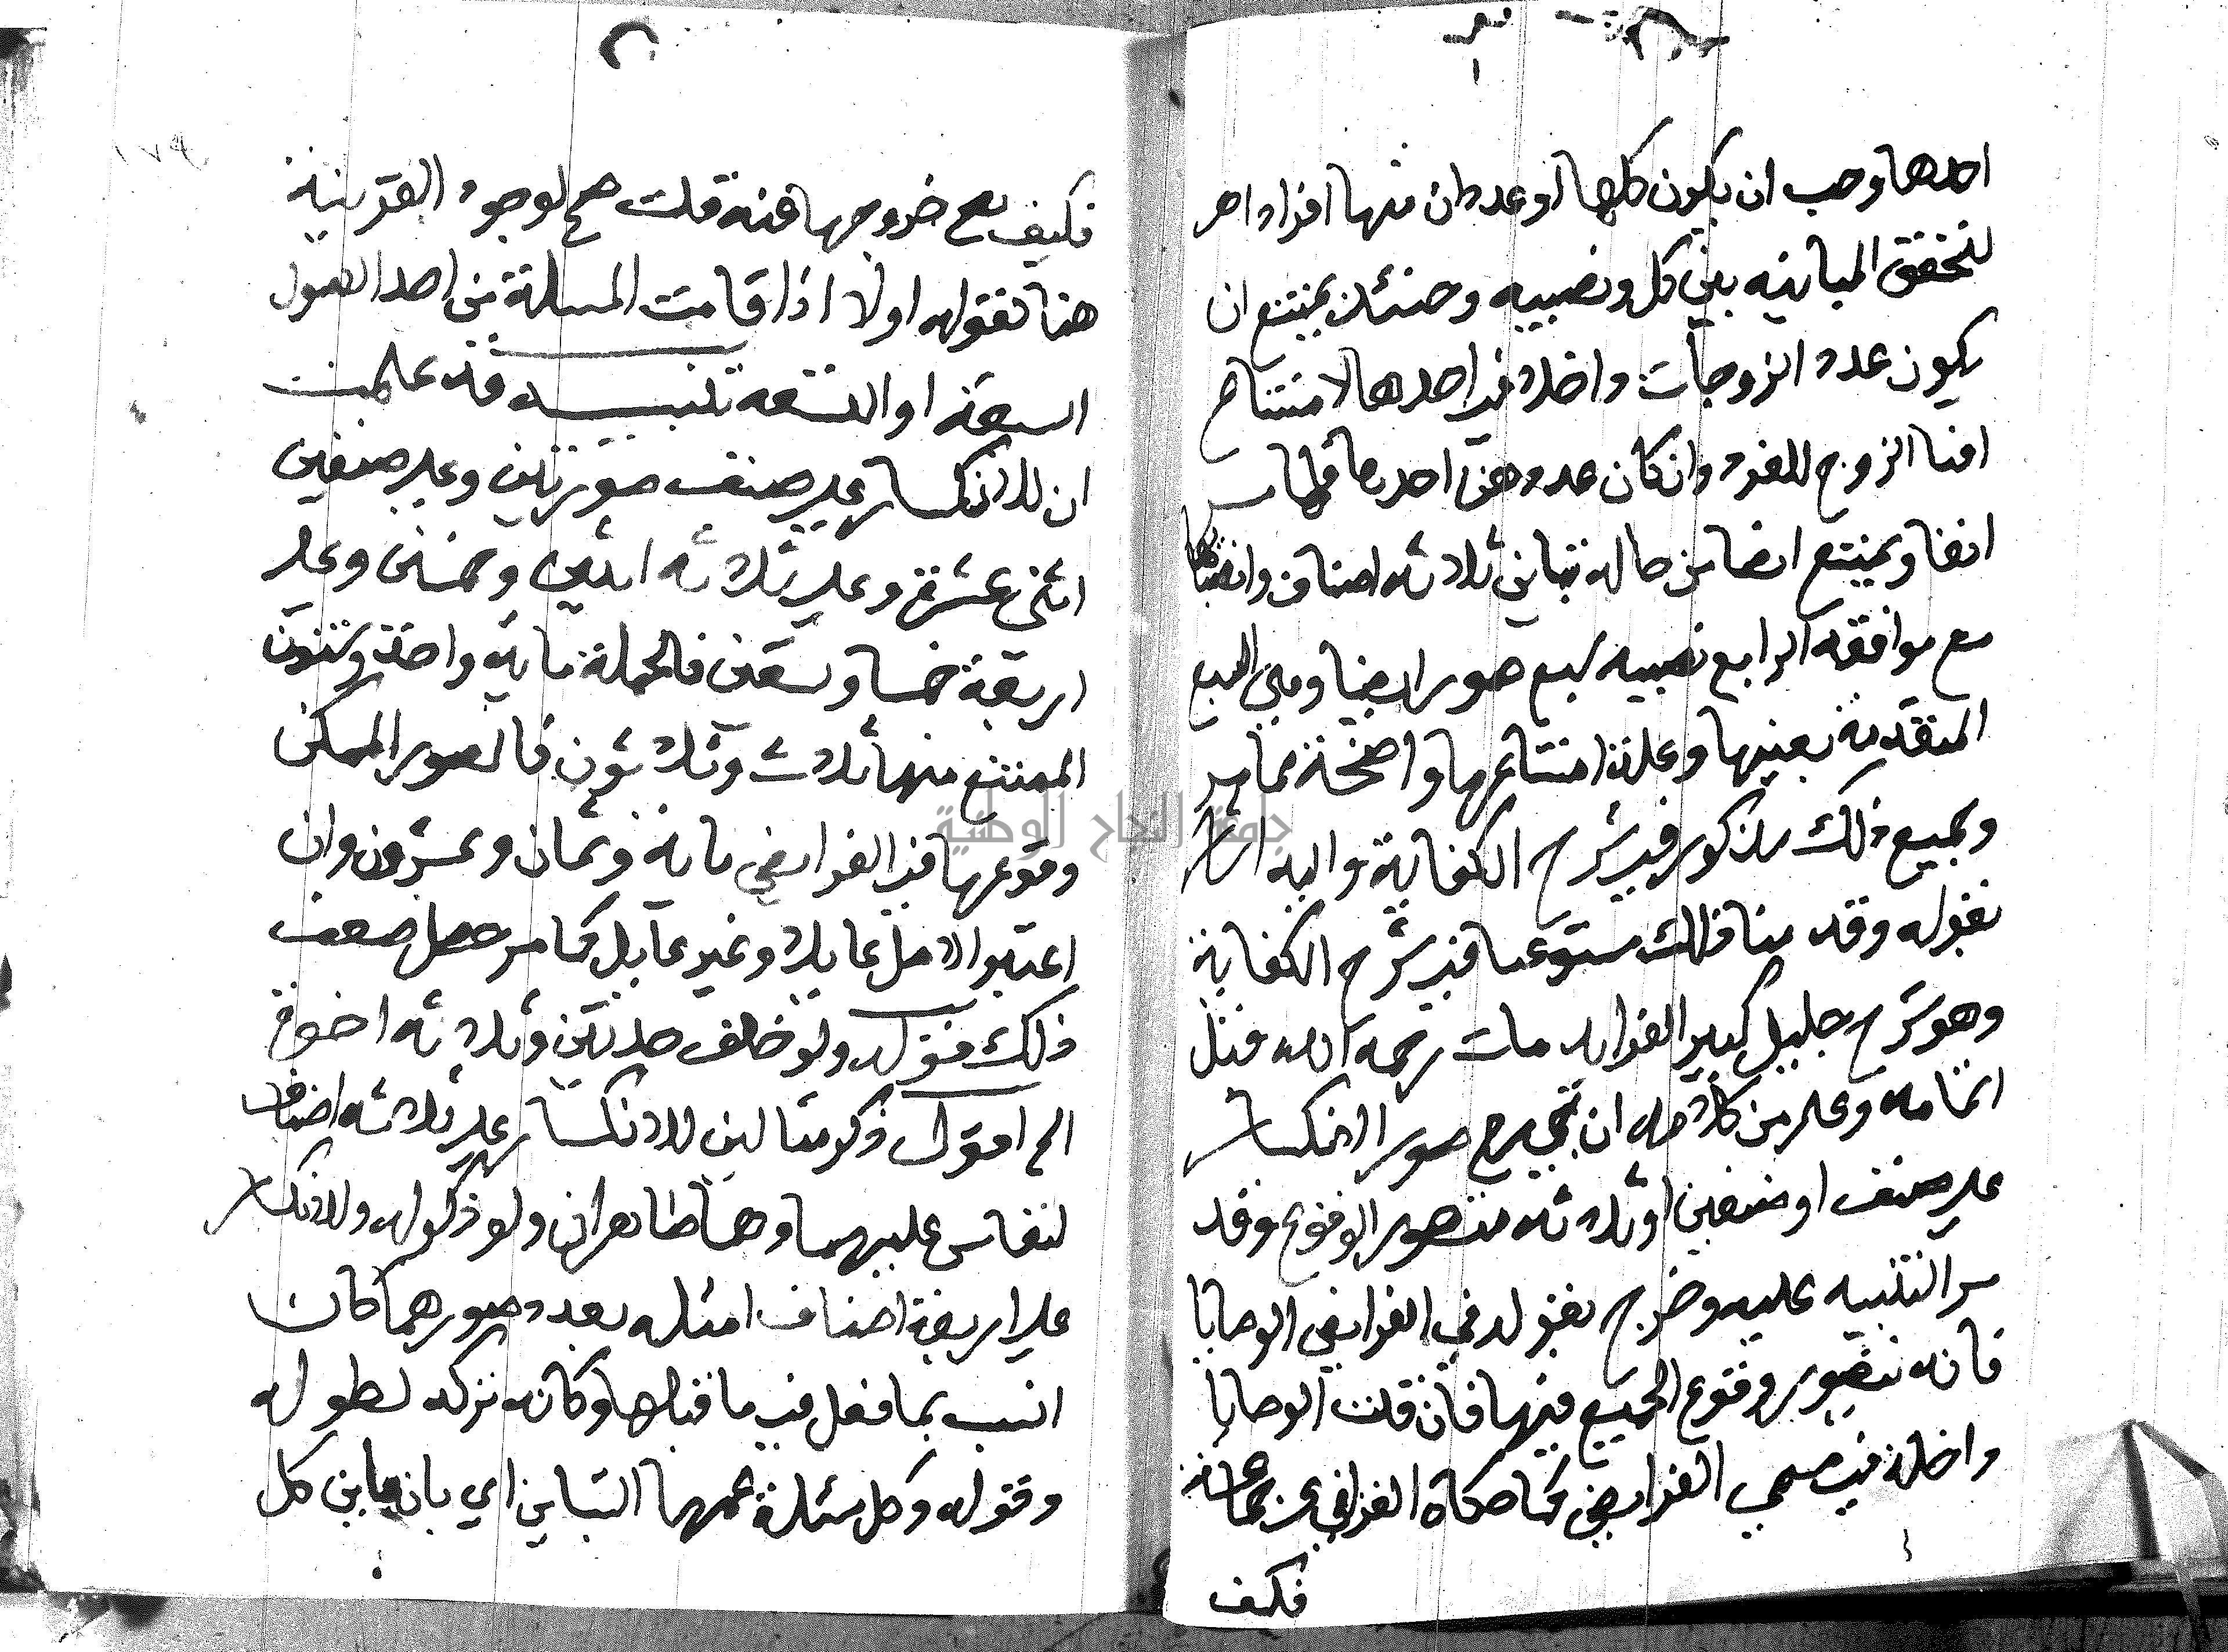 احدها وجب ان يكون كلها او عددان منها افراد احر
لتحقق المباينه بين كل ونصيبه وحينئذ يمتنع ان
يكون عدد الزوجات داخلا في احدها لامتناع
افنا الزوج للفرد وان كان عدد هن احدها فلما مر
انفا ويمتنع ايضا من حاله تباين ثلاثه اصناف وانصباها
مع موافقه الرابع نصيبه سبع صور ايضا وهي السبع
المتقدمة بعينها وعلة امتناعها واضحة مما مر
وجميع ذلك مذكور في شرح الكفاية واليه اشار
بقوله وقد بينا ذلك مستوعبا في شرح الكفاية
وهو شرح جليل كبير الفوايد مات رحمه الله قبل
اتمامه وعلم من كلامه ان جميع صور الانكسار
علي صنف او صنفين او ثلاثه متصور الوقوع وقد
مر التنبيه عليه وخرج بقوله في الفرايض الوصايا
فانه يتصور وقوع الجميع فيها فان قلت الوصايا
داخلة في مسمي الفرايض كما حكاه الغزالي عن جماعة
فكيف
فكيف يصح خروجها عنه قلت صح لوجود القرينة
هنا كقوله اولا اذا قامت المسلة من احد الاصول
السبعة او التسعه تنبيه قد علمت
ان للانكسار علي صنف صورتين وعلي صنفين
اثني عشرة وعلي ثلاثه اثنين وخمسين وعلي
اربعة خمسا وتسعين فالجملة مايه واحدي وستون
الممتنع منها ثلاث وثلاثون فالصور الممكن
وقوعها في الفرايض مايه وثمان وعشرون وان
اعتبر الاصل عايلا وغير عايل كما مر حصل ضعف
ذلك قوله ولو خلف جدتين وثلاثه اخوة
الخ اقول ذكر مثالين للانكسار علي ثلاثه اصناف
لتقاس عليهما وهما ظاهران ولو ذكر له وللانكسار
علي اربعة اصناف امثله بعدد صورهما كان
انسب بما فعل في ما قبلها وكانه تركه لطوله
وقوله وكل مسئلة عمها التباين اي بان باين كل